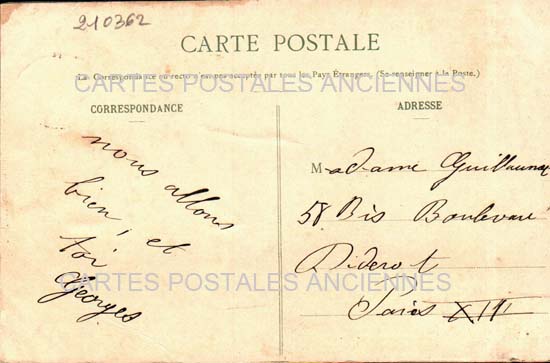 210362
CARTE POSTALE
La Correspondance au recto n'est pas acceptée par tous les Pays Étrangers. (Se renseigner à la Poste.)
CARTES POSTALES ANCIENNES
CORRESPONDANCE
nous allons
bien, et
toi
Georges
ADRESSE
Madame Guillaumat
58 Bis Boulevard
Diderot
Paris XII
CARTES POSTALES ANCIENNES